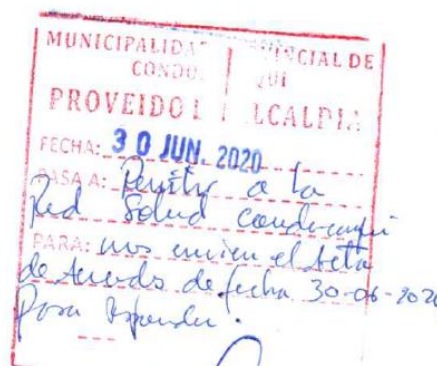 MUNICIPALIDA INCIAL DE
CONDO QUI
PROVEIDO LCALDIA
FECHA: 30 JUN. 2020
PASA A: Remitir a la
Red Salud condorcanqui
PARA: nos envien el Acta
de Acuerdo de fecha 30-06-2020
Para responder.